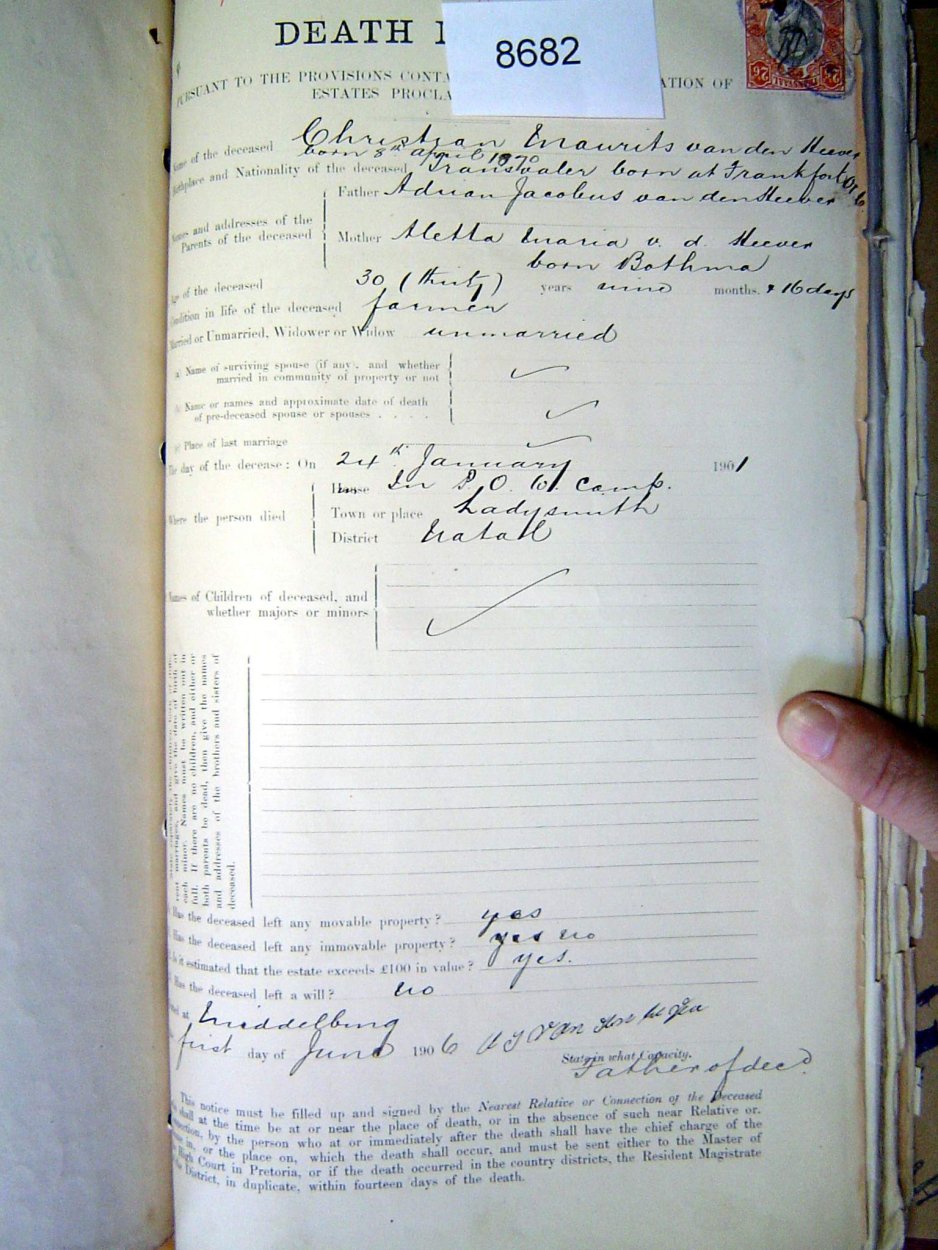 DEATH
8682
PURSUANT TO THE PROVISIONS CONTA ATION OF
ESTATES PROCLA
Name of the deceased Christian Maurits van den Heever
born 8th April 1870
Birthplace and Nationality of the deceased Transvaler born at Frankfort
Father Adrian Jacobus van den Heever
Names and addresses of the
Parents of the deceased
Mother Aletta Maria v. d. Heever
born Bothma
Age of the deceased 30 (thirty) years nine months. & 16 days
Condition in life of the deceased farmer
Married or Unmarried, Widower or Widow unmarried
(a) Name of surviving spouse (if any), and whether
married in community of property or not
(b) Name or names and approximate date of death
of pre-deceased spouse or spouses . . . .
(c) Place of last marriage
The day of the decease: On 24th January 1901
House In P. O. W. Camp.
Where the person died
Town or place Ladysmith
District Natal
Names of Children of deceased, and
whether majors or minors
rent marriages, and give the date of birth of
each minor. Names must be written out in
full. If there are no children, and either or
both parents be dead, then give the names
and addresses of the brothers and sisters of
deceased.
Has the deceased left any movable property? yes
Has the deceased left any immovable property? yes no
Is it estimated that the estate exceeds £100 in value? yes.
Has the deceased left a will? no
at Middelburg
first day of June 1906
State in what Capacity.
Father of decd.
This notice must be filled up and signed by the Nearest Relative or Connection of the Deceased
who shall at the time be at or near the place of death, or in the absence of such near Relative or
Connection, by the person who at or immediately after the death shall have the chief charge of the
house in, or the place on, which the death shall occur, and must be sent either to the Master of
the High Court in Pretoria, or if the death occurred in the country districts, the Resident Magistrate
of the District, in duplicate, within fourteen days of the death.